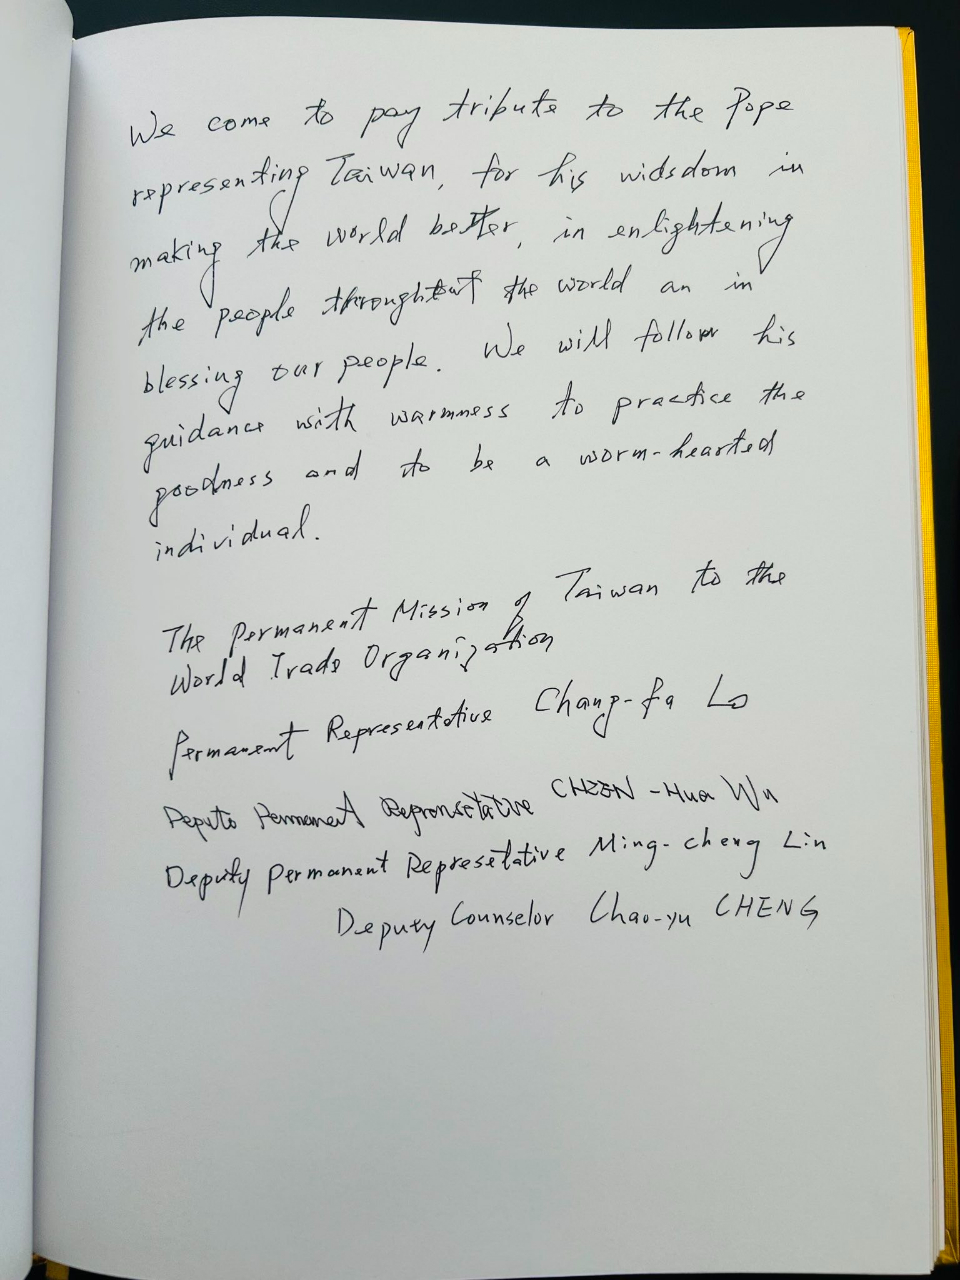 We come to pay tribute to the Pope
representing Taiwan, for his widsdom in
making the world better, in enlightening
the people throughtout the world an in
blessing our people. We will follow his
guidance with warmness to practice the
goodness and to be a worm-hearted
individual.
The Permanent Mission of Taiwan to the
World Trade Organization
Permanent Representative Chang-fa Lo
Deputy Permanent Representative CHEN-Hua Wu
Deputy Permanent Represetative Ming-cheng Lin
Deputy Counselor Chao-yu CHENG